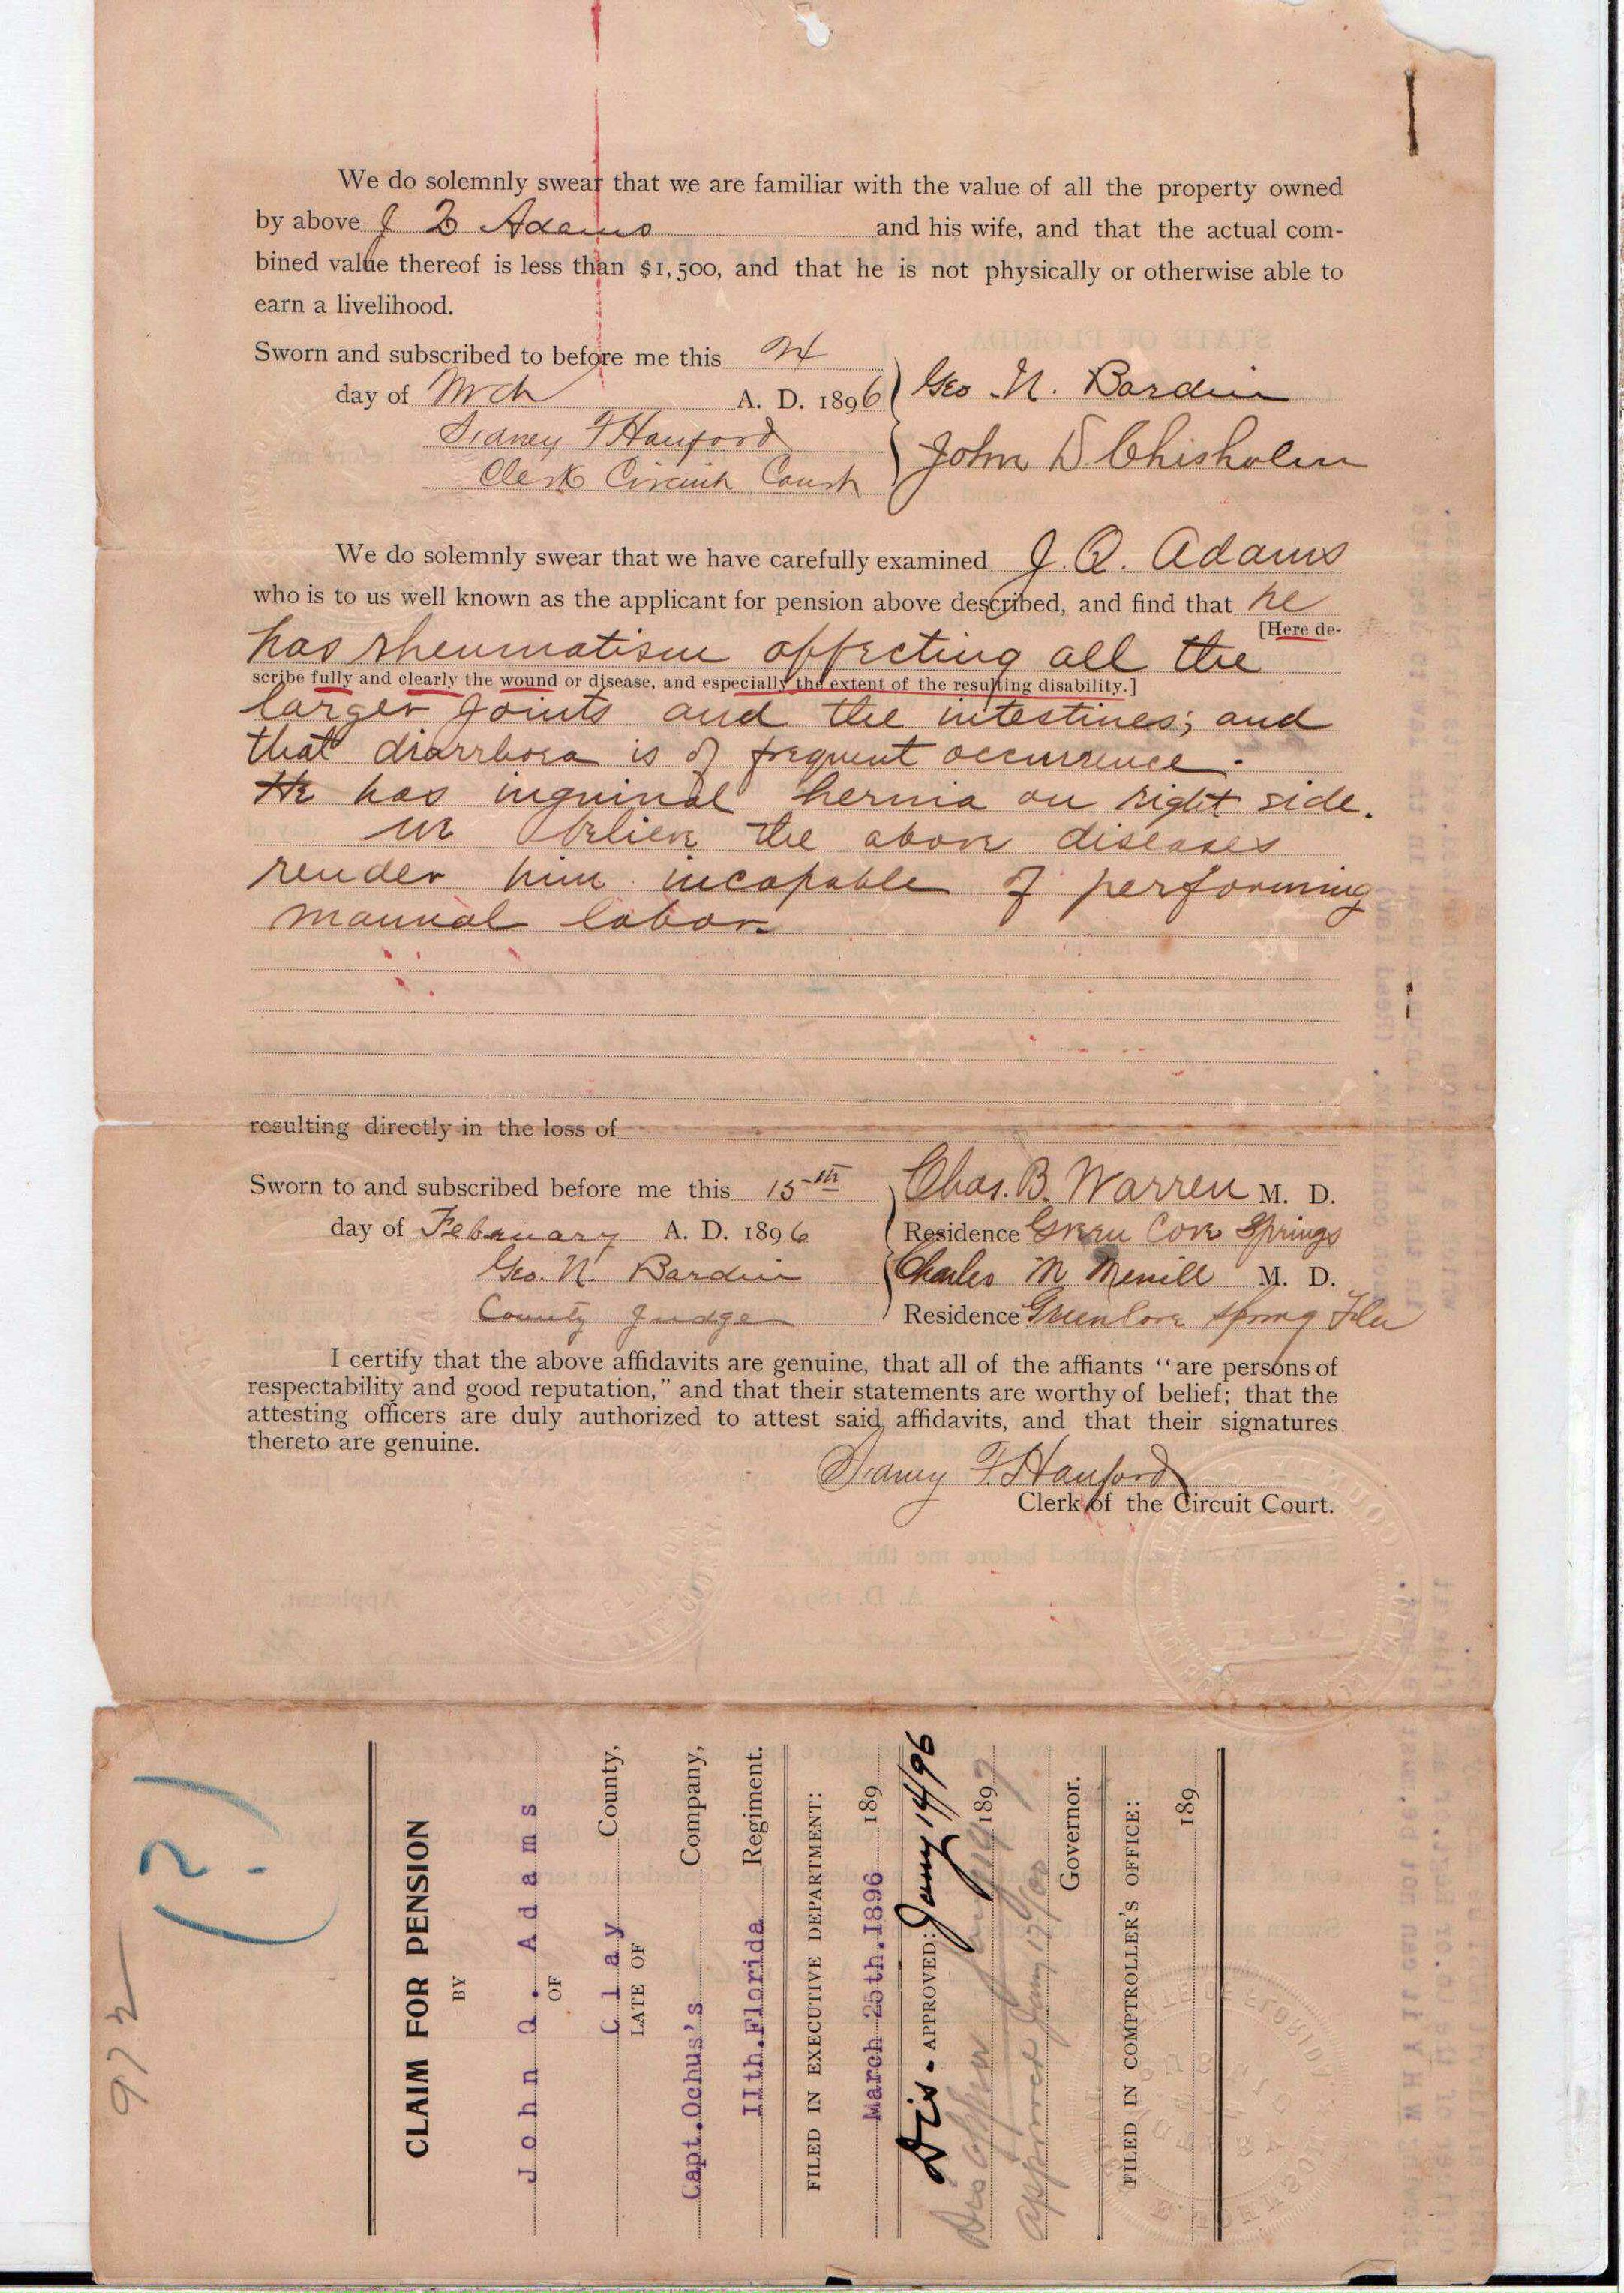 We do solemnly swear that we are familiar with the value of all the property owned
by above J Q Adams and his wife, and that the actual com-
bined value thereof is less than $1,500, and that he is not physically or otherwise able to
earn a livelihood.
Sworn and subscribed to before me this 24
day of Mch A. D. 1896 Geo. N. Bardin
Sidney F Hanford
John D. Chisholm
Clerk Circuit Court
We do solemnly swear that we have carefully examined J. Q. Adams
who is to us well known as the applicant for pension above described, and find that he
[Here de-
has rheumatism affecting all the
scribe fully and clearly the wound or disease, and especially the extent of the resulting disability.]
larger joints and the intestines; and
that diarrhoea is of frequent occurrence.
He has inguinal hernia on right side.
We believe the above diseases
render him incapable of performing
manual labor.
resulting directly in the loss of
Sworn to and subscribed before me this 15th Chas. B. Warren M. D.
day of February A. D. 1896 Residence Green Cove Springs
Geo. N. Bardin Charles M Merrill M. D.
County Judge Residence Green Cove Spring Fla
I certify that the above affidavits are genuine, that all of the affiants "are persons of
respectability and good reputation," and that their statements are worthy of belief; that the
attesting officers are duly authorized to attest said affidavits, and that their signatures
thereto are genuine.
Sidney F. Hanford
Clerk of the Circuit Court.
972
(?)
CLAIM FOR PENSION
BY
John Q. Adams
OF
Clay County,
LATE OF
Capt. Ochus's Company,
11th. Florida Regiment.
FILED IN EXECUTIVE DEPARTMENT:
March 25th. 1896 189
Dis-APPROVED: Jany 14/96
189
approved Jany 17/00
Governor.
FILED IN COMPTROLLER'S OFFICE:
189